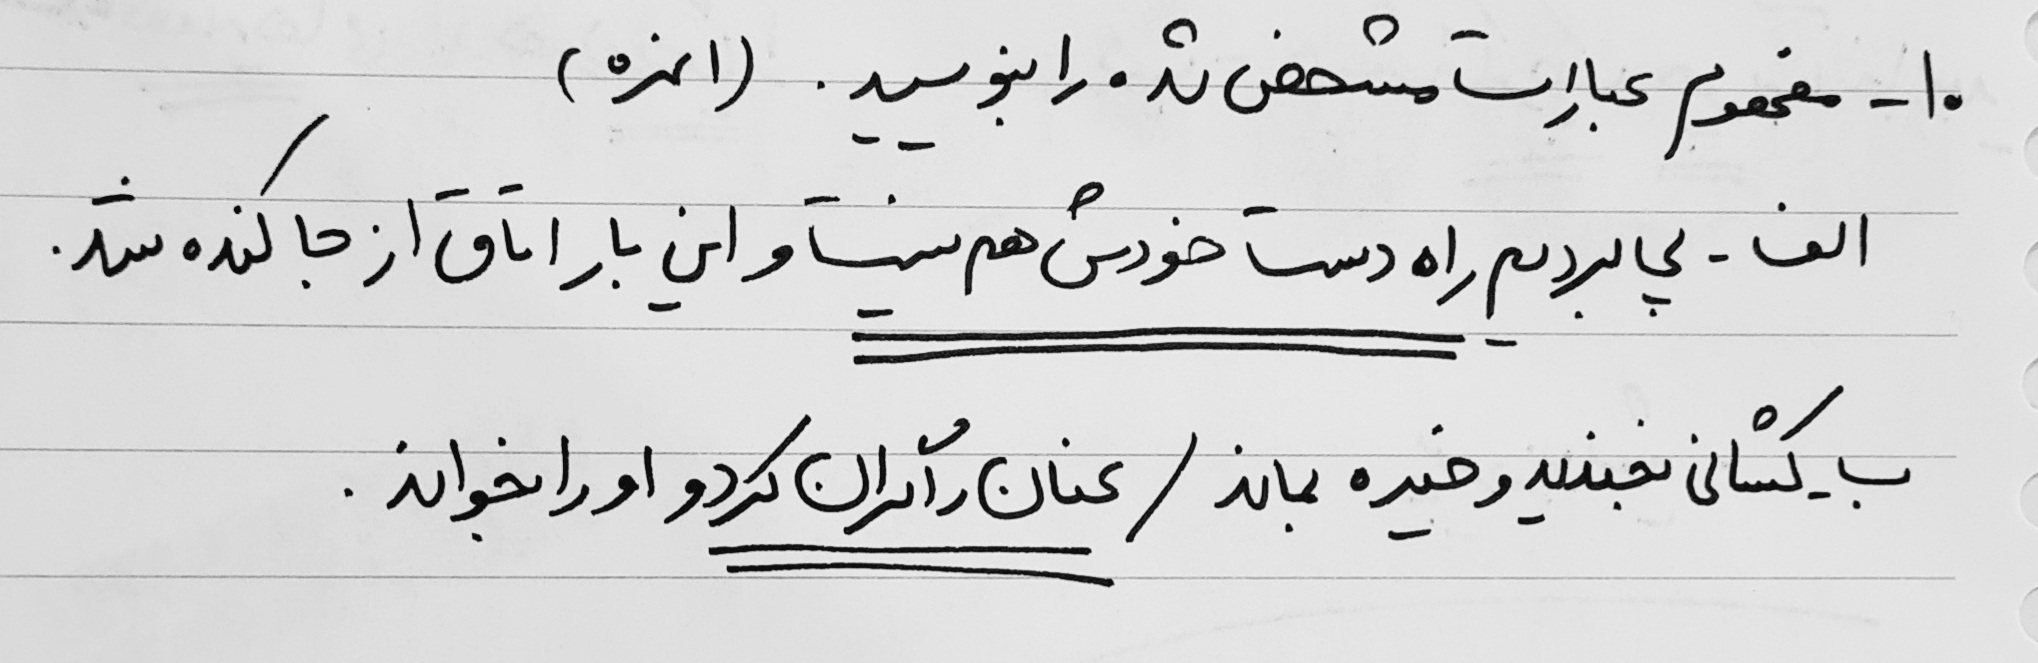 ۱۰- مفهوم عبارات مشخص شده را بنویسید. (۱ نمره)
الف - پی بردیم راه دست خودش هم نیست و این بار اتاق از جا کنده شد.
ب- کشانی بخندید و خیره بماند / عنان را گران کرد و او را بخواند.